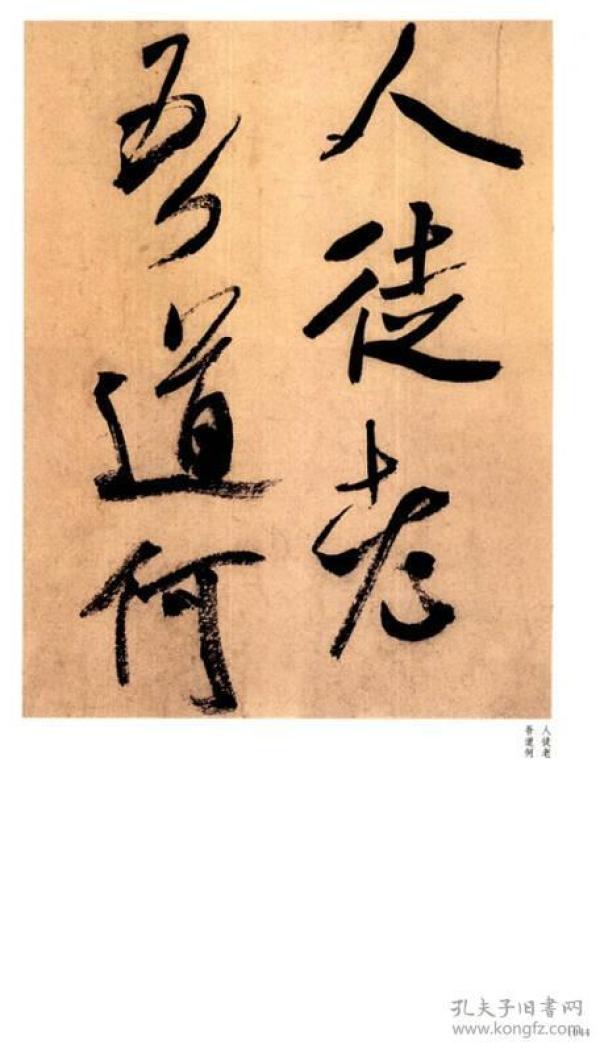 人徒老
吾道何
人徒老
吾道何
孔夫子旧书网
www.kongfz.com
1044